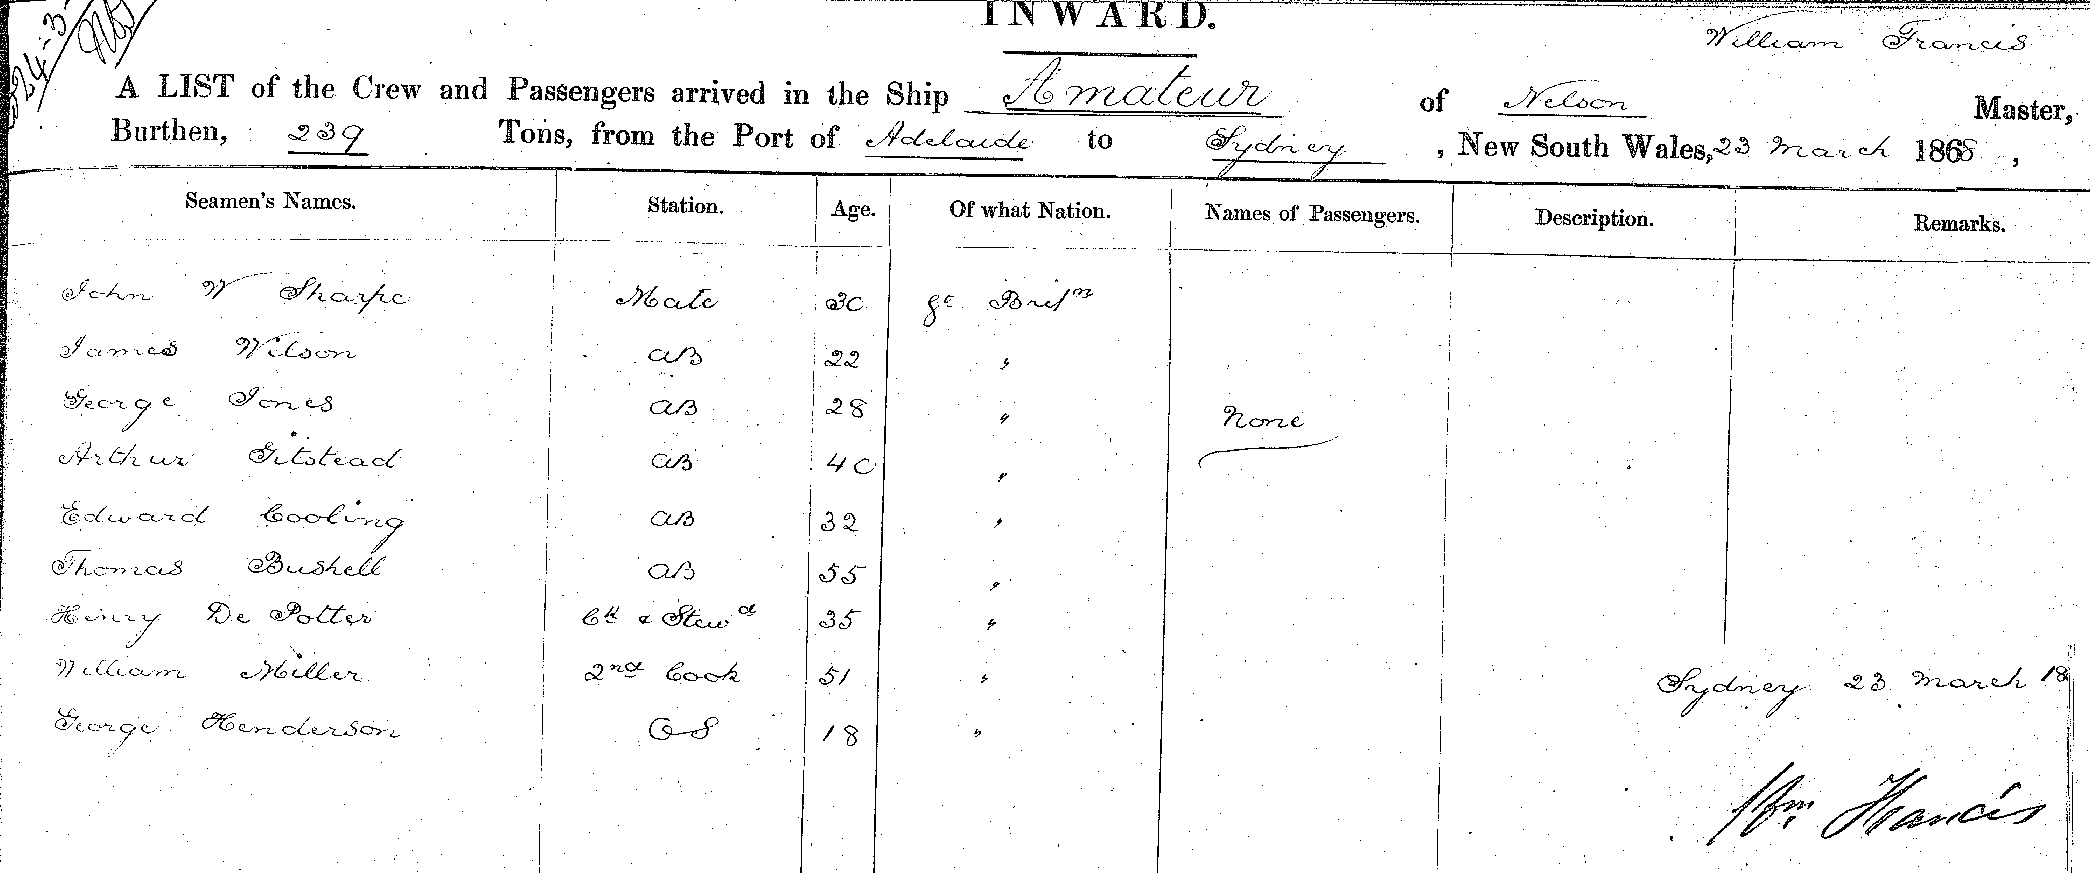 INWARD.
William Francis
A LIST of the Crew and Passengers arrived in the Ship Amateur of Nelson Master,
Burthen, 239 Tons, from the Port of Adelaide to Sydney, New South Wales, 23 March 1868,
Seamen's Names. Station. Age. Of what Nation. Names of Passengers. Description. Remarks.
John W Sharpe Mate 30 Gt Britn
James Wilson AB 22 "
George Jones AB 28 " None
Arthur Titstead AB 40 "
Edward Cooling AB 32 "
Thomas Bushell AB 55 "
Henry De Potter Ck & Stewd 35 "
William Miller 2nd Cook 51 " Sydney 23 March 18
George Henderson OS 18 "
Wm Francis